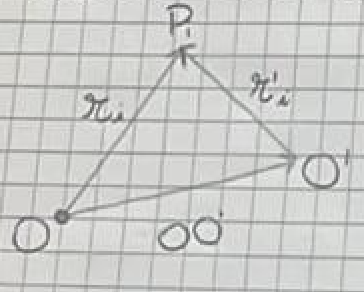 Pi
ri r'i
O'
O OO'